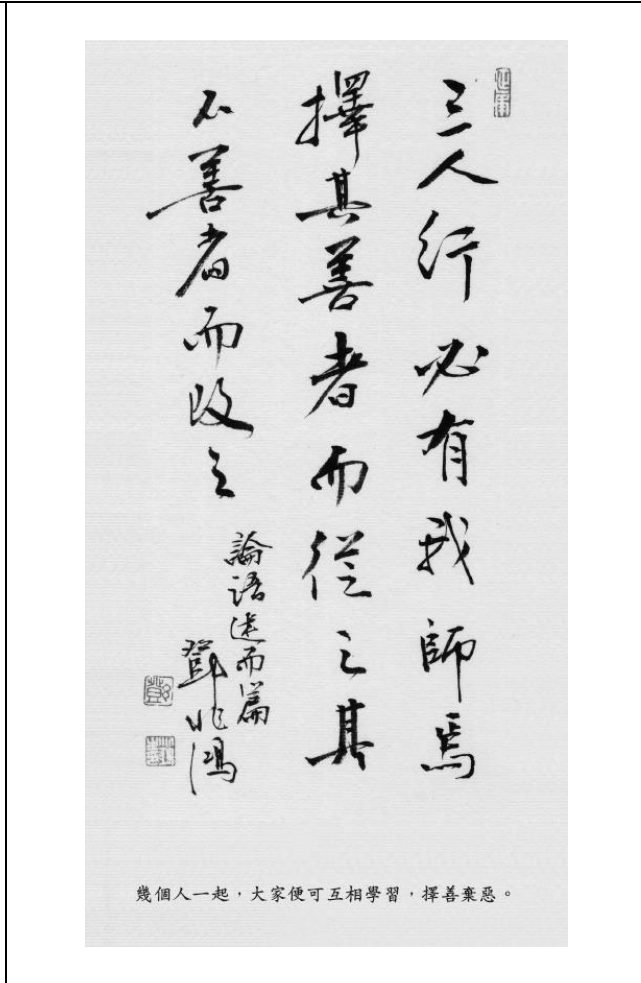 三人行必有我師焉
擇其善者而從之其
不善者而改之
論語述而篇
鄧兆鴻
幾個人一起，大家便可互相學習，擇善棄惡。